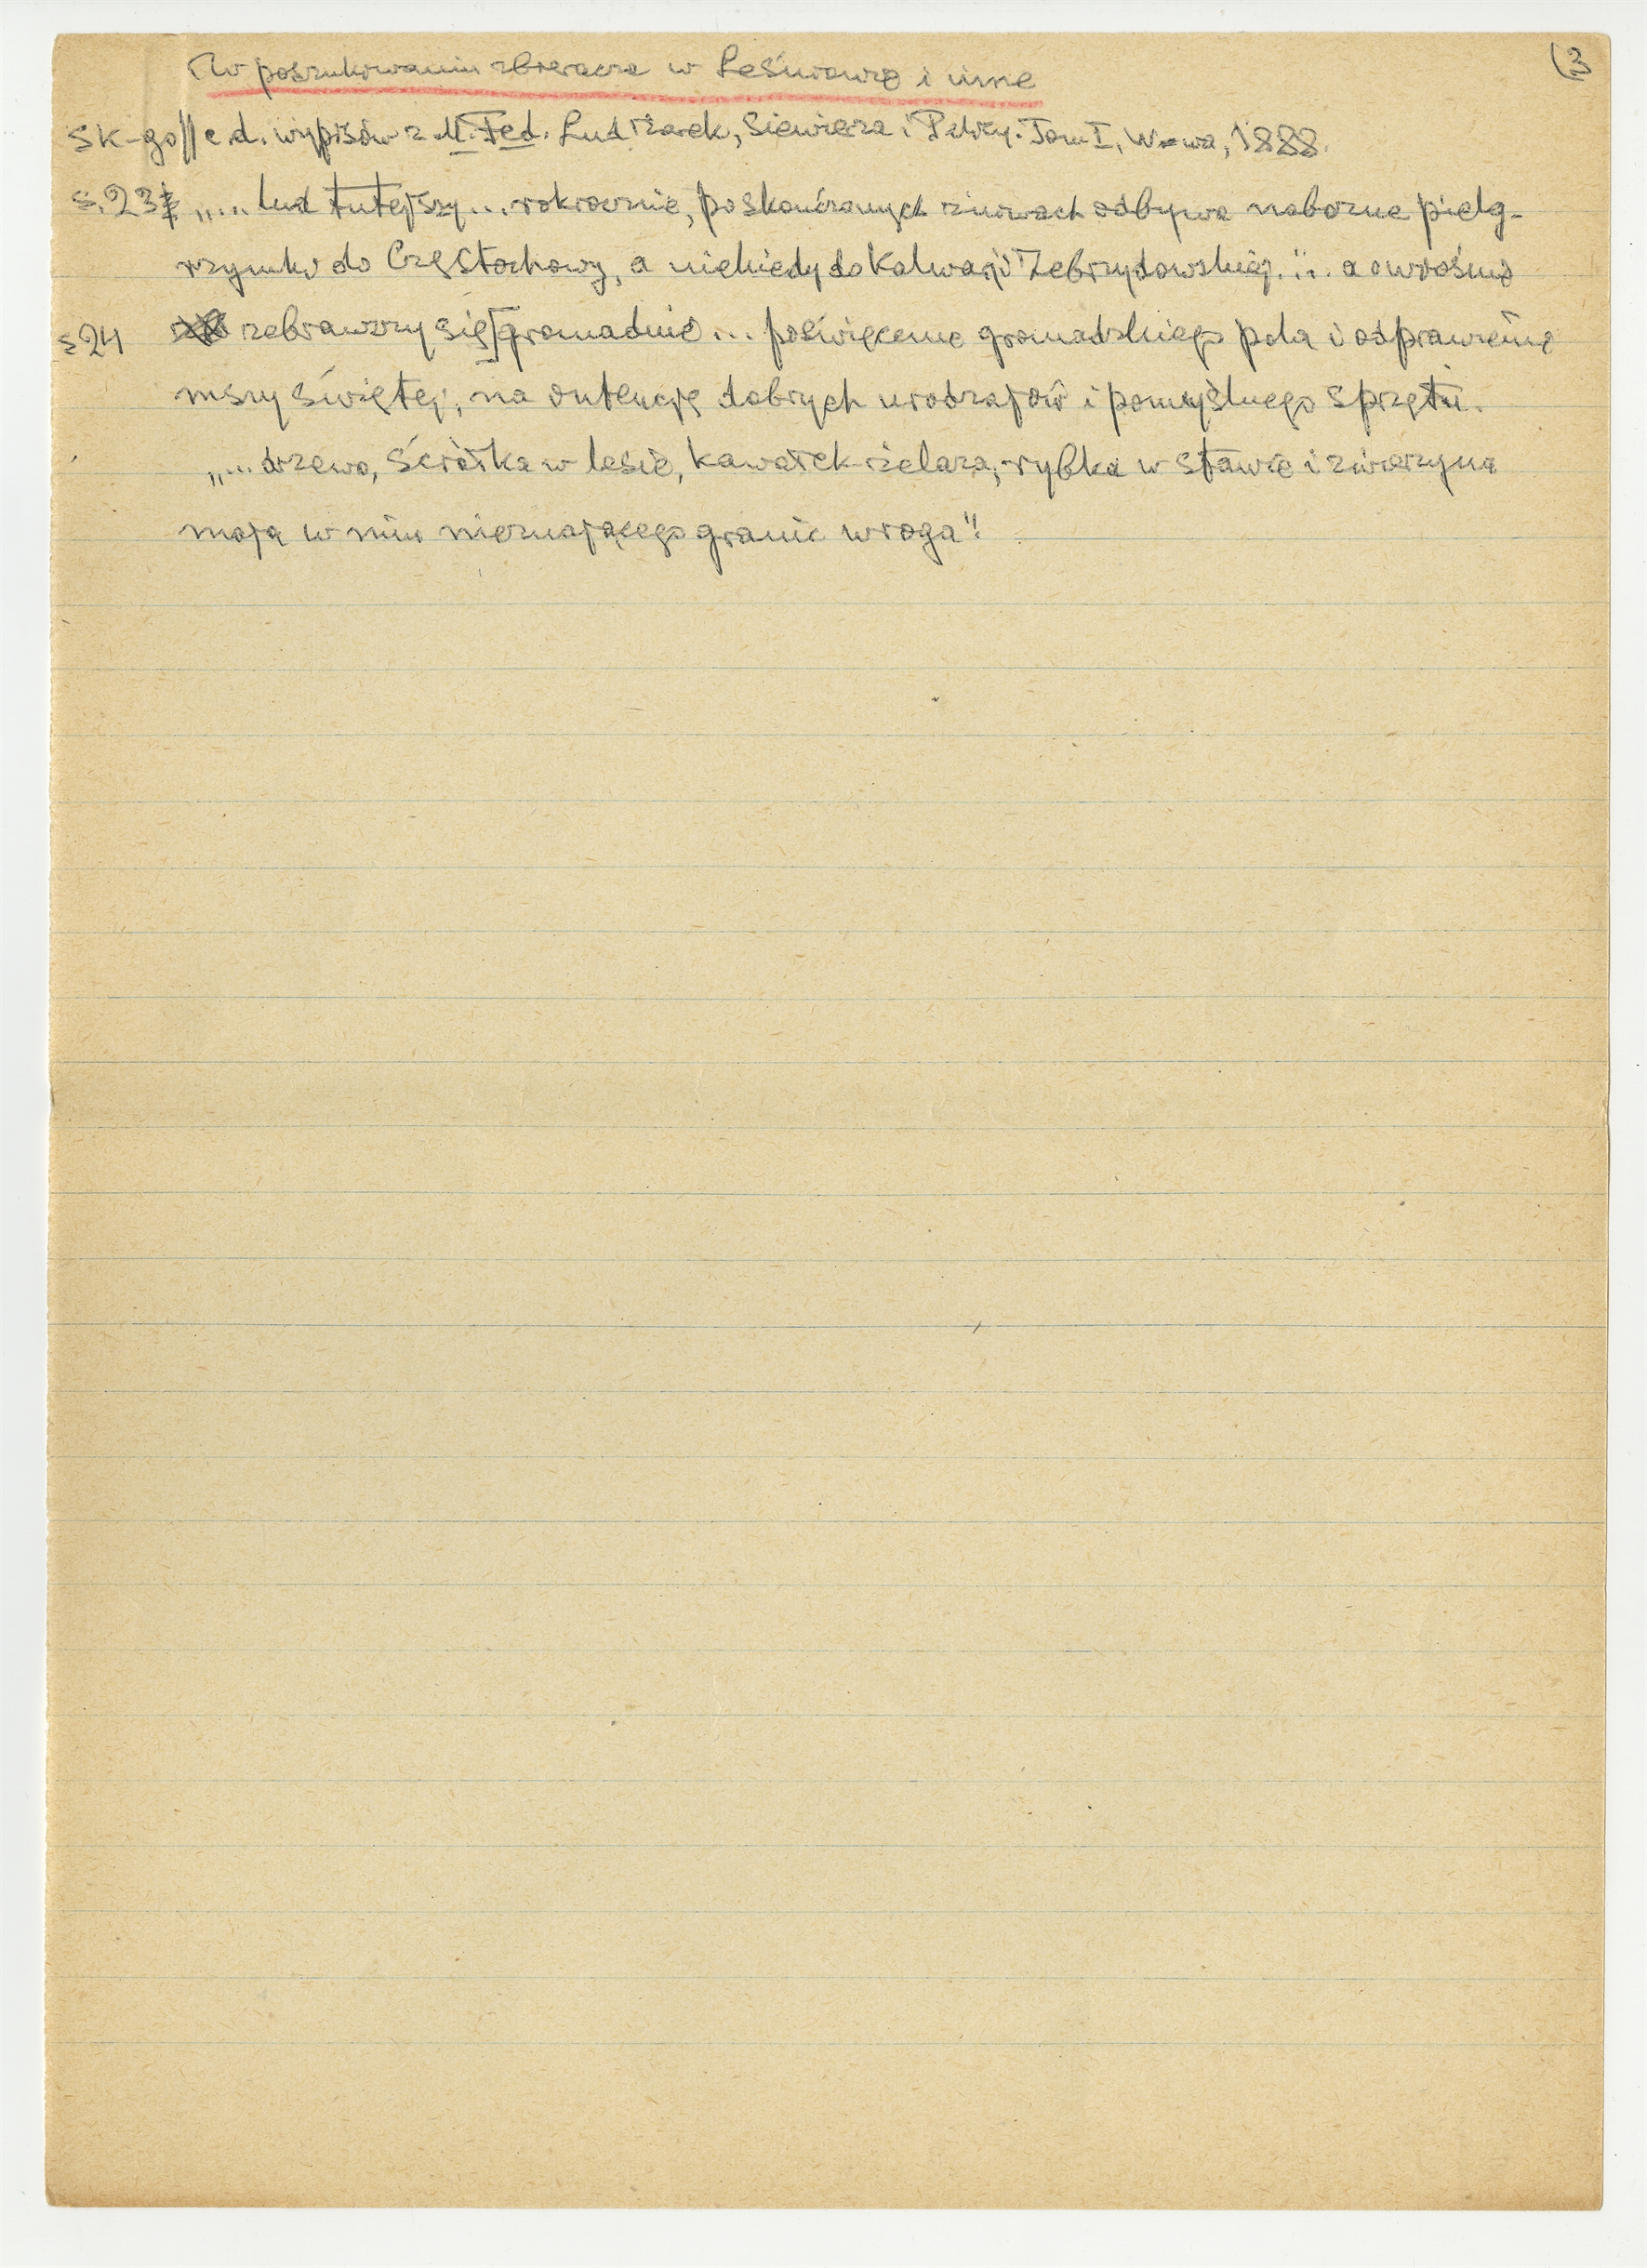 (3
W poszukiwaniu zbieracza w Leśniowie i inne
Sk-go || c.d. wypisów z M. Fed. Lud Żarek, Siewierza i Pilicy. Tom I, W-wa, 1888.
s. 23 „.... lud tutejszy... rokrocznie, po skończonych żniwach odbywa nabożne pielg-
rzymki do Częstochowy, a niekiedy do Kalwarji Zebrzydowskiej."... a o wiośnie
s 24 zebrawszy się gromadnie... poświęcenie gromadzkiego pola i odprawienie
mszy świętej, na intencję dobrych urodzajów i pomyślnego sprzętu.
„... drzewo, ściółka w lesie, kawałek żelaza, rybka w stawie i zwierzyna
mają w nim nieznającego granic wroga"!